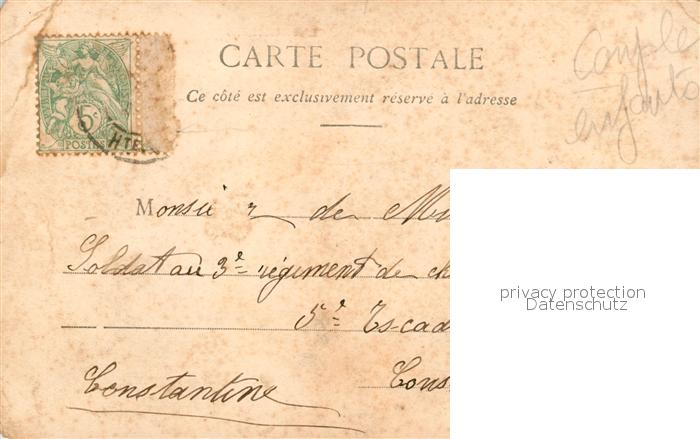 CARTE POSTALE
Ce côté est exclusivement réservé à l'adresse
Couple
enfants
5c
POSTES
HTE
Monsieur de Mu
Soldat au 3e régiment de ch
5e Escad
Cons
Constantine
privacy protection
Datenschutz